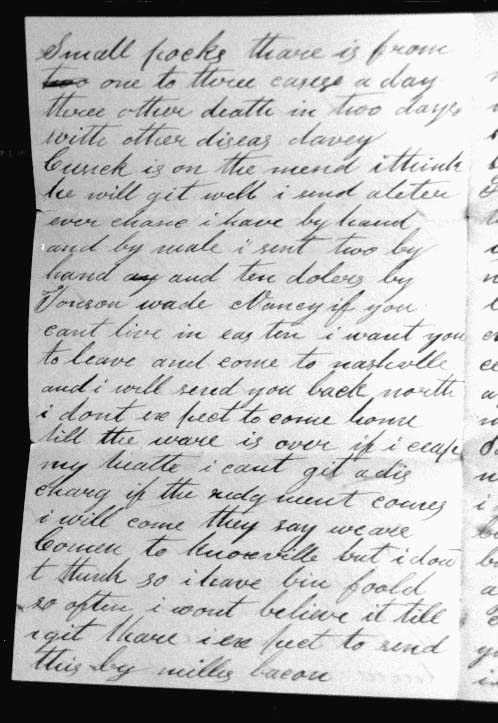 Small pocks thare is from
too one to three casese a day
three other death in two days
with other diseas davey
Cusick is on the mend i think
he will git well i send a leter
ever chane i have by hand
and by male i sent two by
hand ay and ten dolers by
Tonson wade Nancy if you
cant live in eas ten i want you
to leave and come to nashvlle
and i will send you back north
i dont ex pect to come home
till the ware is over if i ceap
my healte i cant git a dis
charg if the rudgment comes
i will come they say we are
Comen to Knoxville but i don
t think so i have bin foold
so often i wont believe it till
i git thare i ex pect to send
this by millis bacon